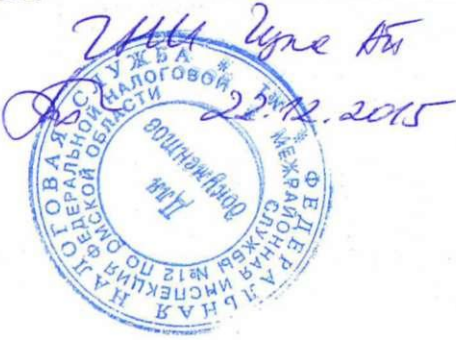 22.12.2015
ФЕДЕРАЛЬНАЯ НАЛОГОВАЯ СЛУЖБА *
МЕЖРАЙОННАЯ ИНСПЕКЦИЯ ФЕДЕРАЛЬНОЙ НАЛОГОВОЙ
СЛУЖБЫ №12 ПО ОМСКОЙ ОБЛАСТИ
Для
документов